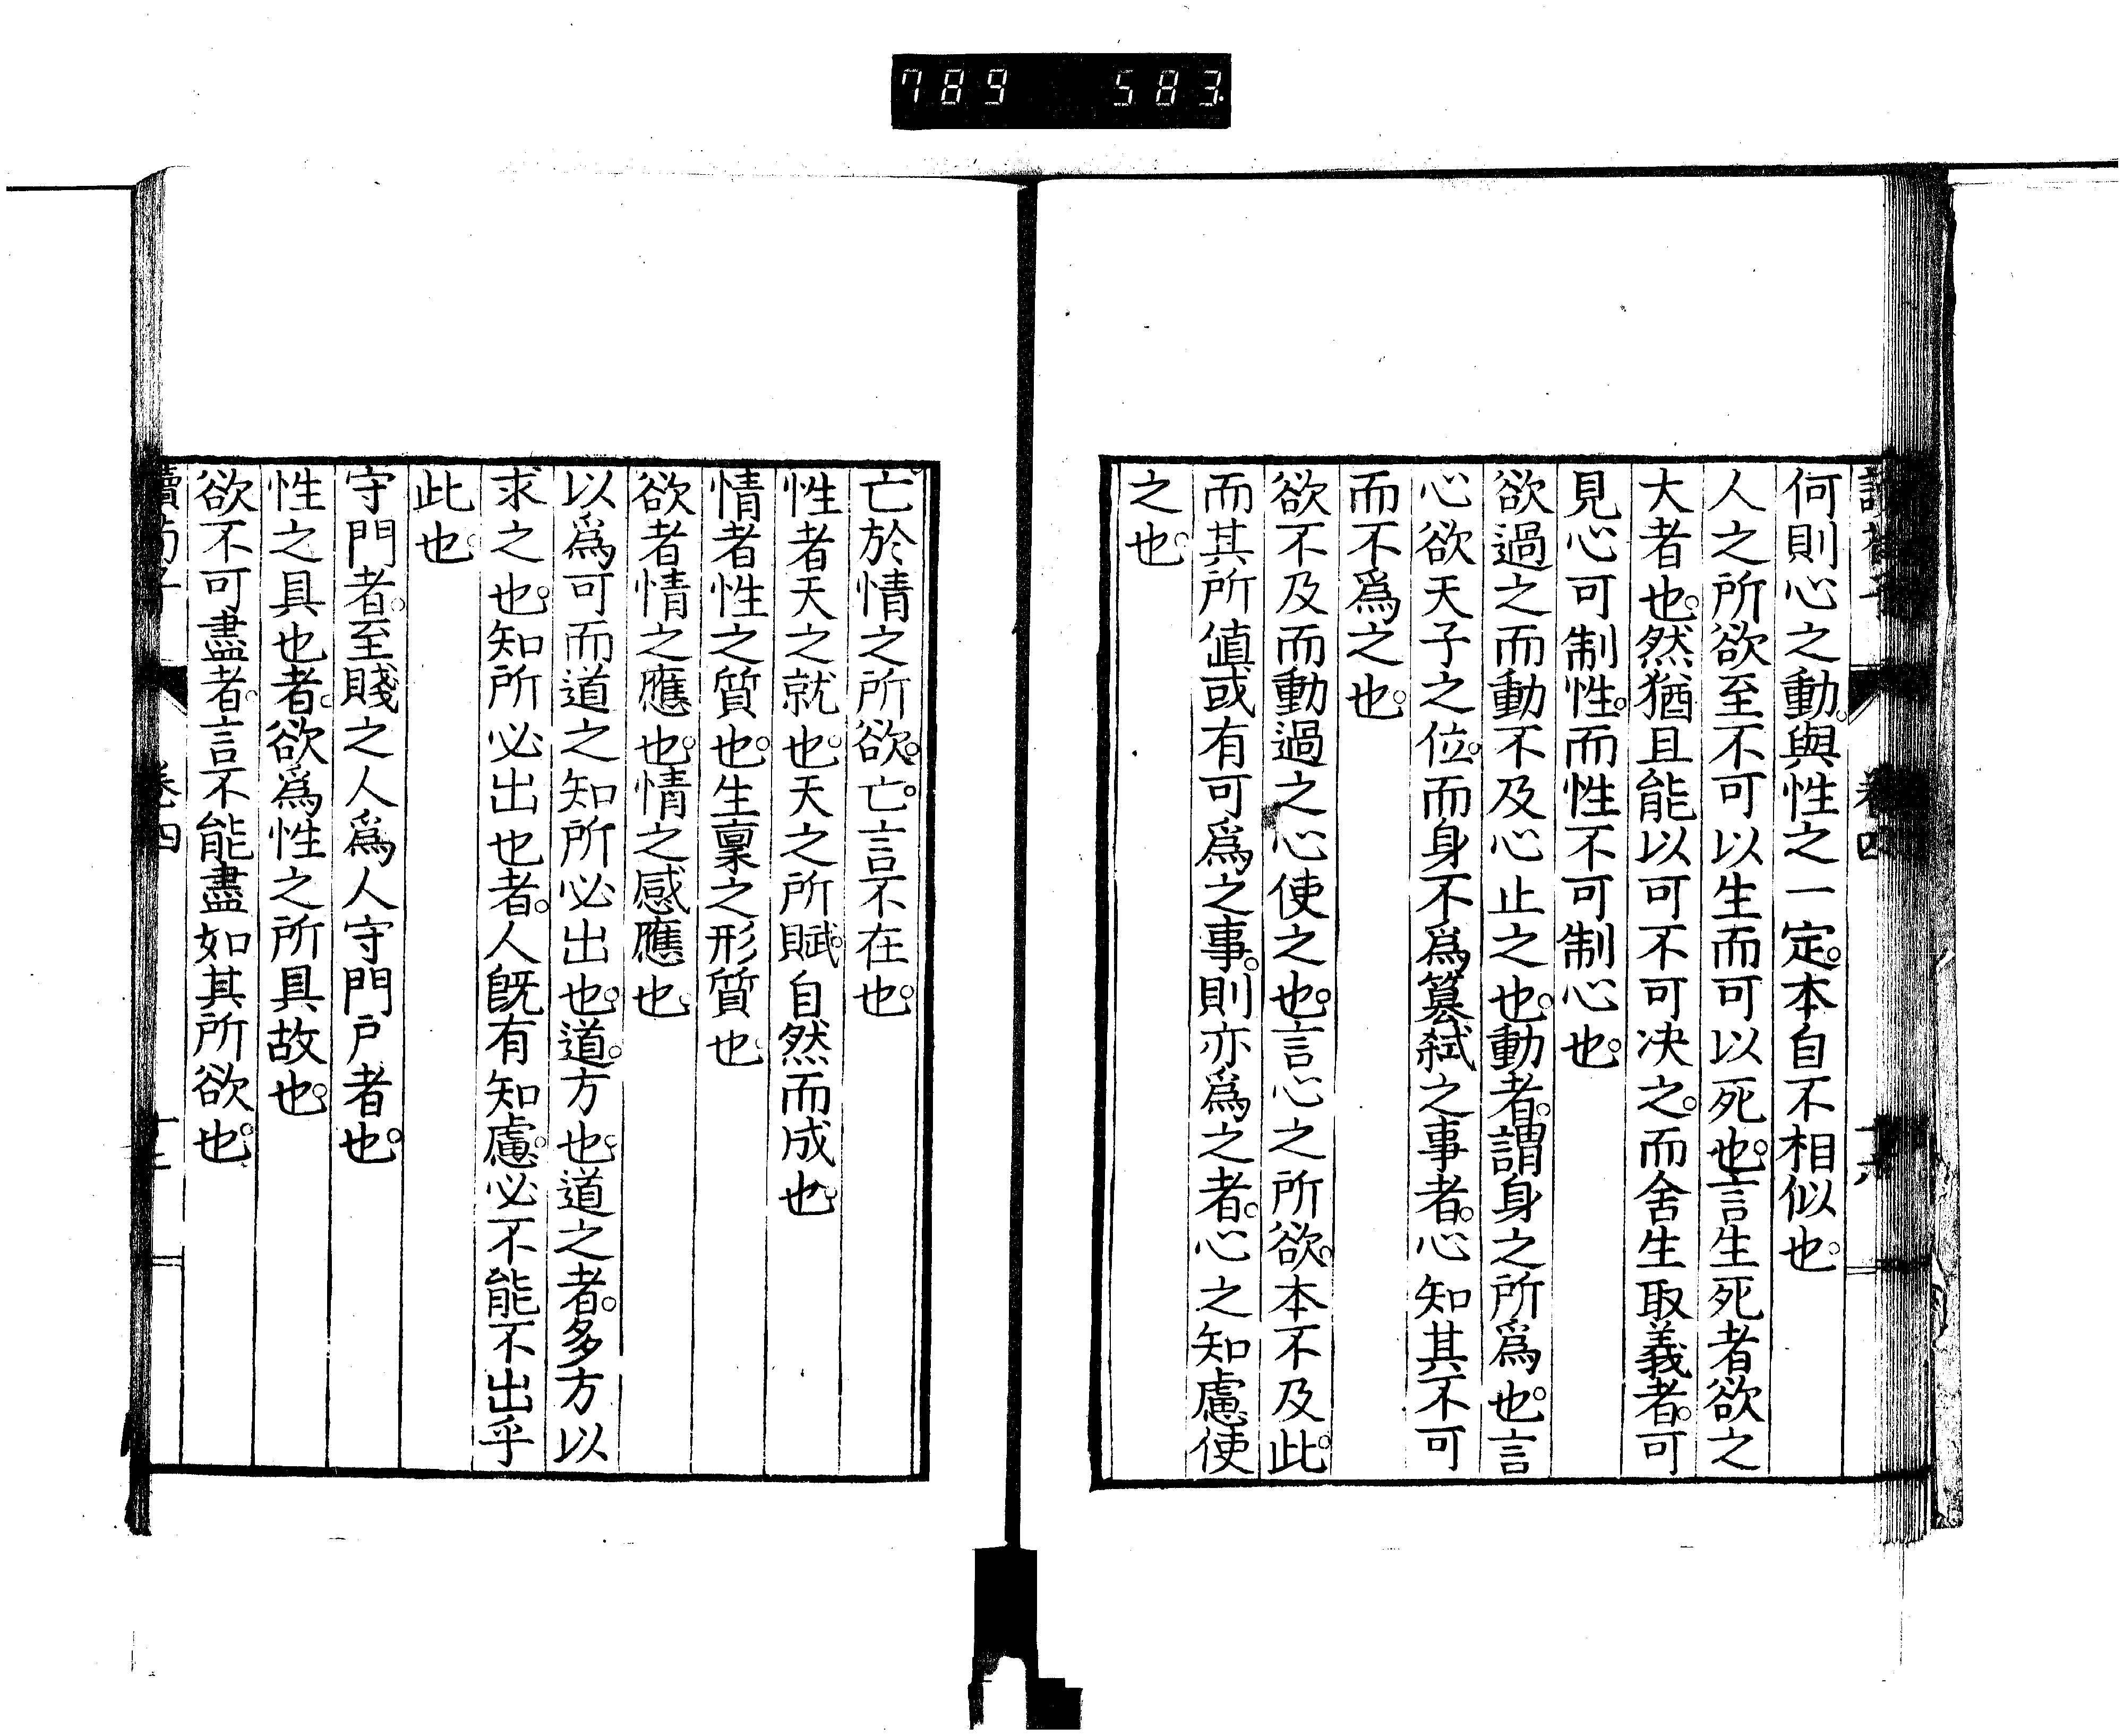 789 583
何則心之動。與性之一定。本自不相似也。
人之所欲至不可以生而可以死也。言生死者欲之
大者也。然猶且能以可不可决之。而舍生取義者。可
見心可制性。而性不可制心也。
欲過之而動不及心止之也。動者。謂身之所爲也。言
心欲天子之位。而身不爲簒弑之事者。心知其不可
而不爲之也。
欲不及而動過之心使之也。言心之所欲。本不及此。
而其所値或有可爲之事。則亦爲之者。心之知慮使
之也。
亡於情之所欲。亡。言不在也。
性者天之就也。天之所賦。自然而成也。
情者性之質也。生稟之形質也。
欲者情之應也。情之感應也。
以爲可而道之知所必出也。道。方也。道之者。多方以
求之也。知所必出也者。人旣有知慮。必不能不出乎
此也。
守門者。至賤之人爲人守門戶者也。
性之具也者。欲爲性之所具故也。
欲不可盡者。言不能盡如其所欲也。
卷四